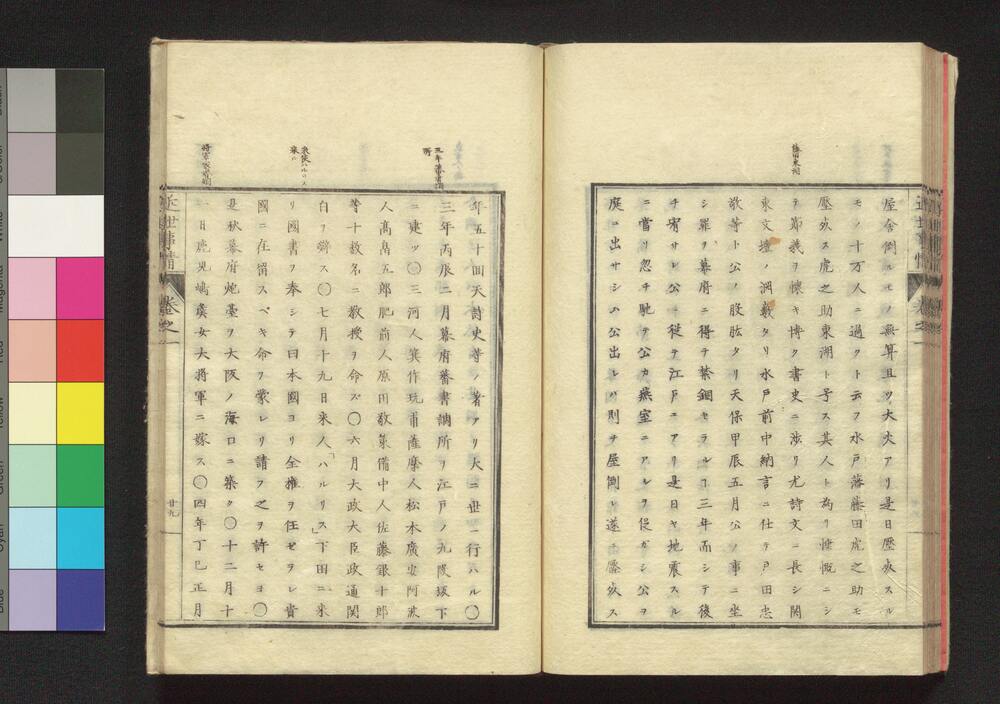 屋舎倒ルヽノ無算且ツ大火アリ是日壓死スル
モノ十万人ニ過クト云フ水戸藩藤田虎之助モ
壓死ス虎之助東湖ト号ス其人ト為リ慷慨ニシ
テ節義ヲ懐キ博ク書史ニ渉リ尤詩文ニ長シ関
東文壇ノ洞數タリ水戸前中納言ニ仕テ戸田忠
敬等ト公ノ股肱タリ天保甲辰五月公ノ事ニ坐
シ罪ヲ幕府ニ得テ禁錮セラルヽコ三年而シテ後
チ宥サレ公ニ従テ江戸ニアリ是日ヤ地震スル
ニ當リ忽チ馳テ公カ燕室ニアルヲ促ガシ公ヲ
庭ニ出サシム公出レバ則チ屋倒レ遂ニ壓死ス
年五十回天詩史等ノ著アリ大ニ世ニ行ハル〇
三年蕃書調
所
三年丙辰二月幕府蕃書調所ヲ江戸ノ九段坂下
ニ建ツ〇三河人箕作阮甫薩摩人松木廣安阿波
人高畠五郎肥前人原田敬策備中人佐藤銀十郎
等十数名ニ教授ヲ命ズ〇六月大政大臣政通関
白ヲ辞ス〇七月十九日米人「ハルリス」下田ニ来
米使ハルリス
来ル
リ國書ヲ奉シテ曰本國ヨリ全権ヲ任ゼラレ貴
國ニ在留スベキ命ヲ蒙レリ請フ之ヲ許セヨ〇
是秋幕府炮臺ヲ大阪ノ海口ニ築ク〇十二月十
一日鹿児嶋虞女大将軍ニ嫁ス〇四年丁巳正月
近世事情
巻之
廿九